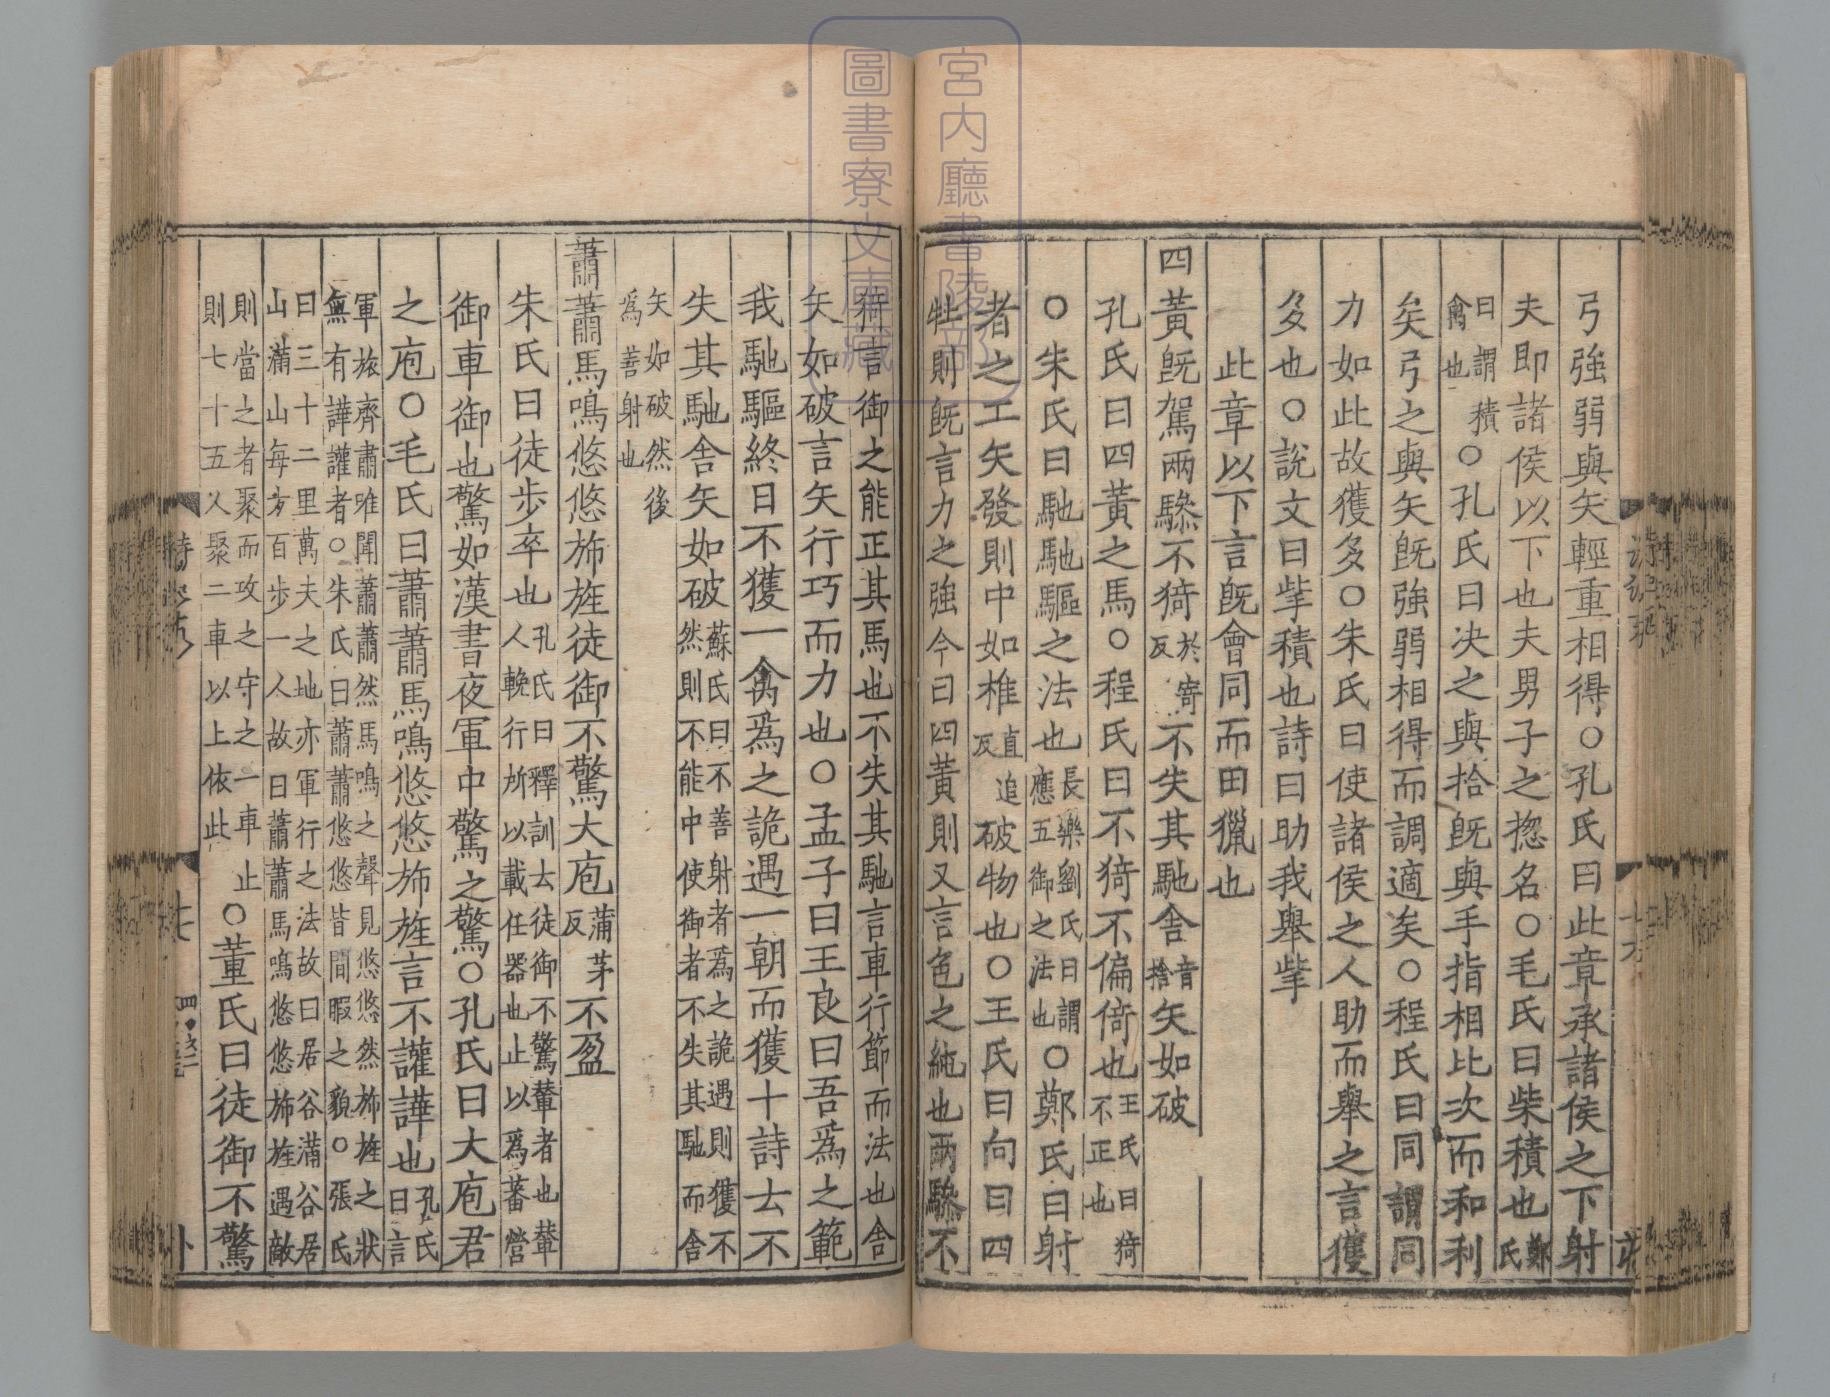 弓強弱與矢輕重相得○孔氏曰此章承諸侯之下射
夫即諸侯以下也夫男子之揔名○毛氏曰柴積也鄭氏
曰謂積禽也○孔氏曰决之與拾既與手指相比次而和利
矣弓之與矢既強弱相得而調適矣○程氏曰同謂同
力如此故獲多○朱氏曰使諸侯之人助而舉之言獲
多也○說文曰㧘積也詩曰助我舉㧘
此章以下言既會同而田獵也
四黃既駕兩驂不猗於寄反不失其馳舍音捨矢如破
孔氏曰四黃之馬○程氏曰不猗不偏倚也王氏曰猗不正也
○朱氏曰馳馳驅之法也長樂劉氏曰謂應五御之法也○鄭氏曰射
者之工矢發則中如椎直追反破物也○王氏曰向曰四
牡則既言力之強今曰四黃則又言色之純也兩驂不
猗言御之能正其馬也不失其馳言車行節而法也舍
矢如破言矢行巧而力也○孟子曰王良曰吾為之範
我馳驅終日不獲一禽為之詭遇一朝而獲十詩云不
失其馳舍矢如破蘇氏曰不善射者為之詭遇則獲不然則不能中使御者不失其馳而舍
矢如破然後為善射也
蕭蕭馬鳴悠悠斾旌徒御不驚大庖蒲茅反不盈
朱氏曰徒步卒也孔氏曰釋訓云徒御不驚輦者也輦人輓行所以載任器也止以為蕃營
御車御也驚如漢書夜軍中驚之驚○孔氏曰大庖君
之庖○毛氏曰蕭蕭馬鳴悠悠斾旌言不讙譁也孔氏曰言
軍旅齊肅唯聞蕭蕭然馬鳴之聲見悠悠然斾旌之狀無有譁讙者○朱氏曰蕭蕭悠悠皆閒暇之貌○張氏
曰三十二里萬夫之地亦軍行之法故曰居谷滿谷居山滿山每方百步一人故曰蕭蕭馬鳴悠悠斾旌遇敵
則當之者聚而攻之守之一車止則七十五人聚二車以上依此○董氏曰徒御不驚
宮内廳書陵部
圖書寮文庫藏